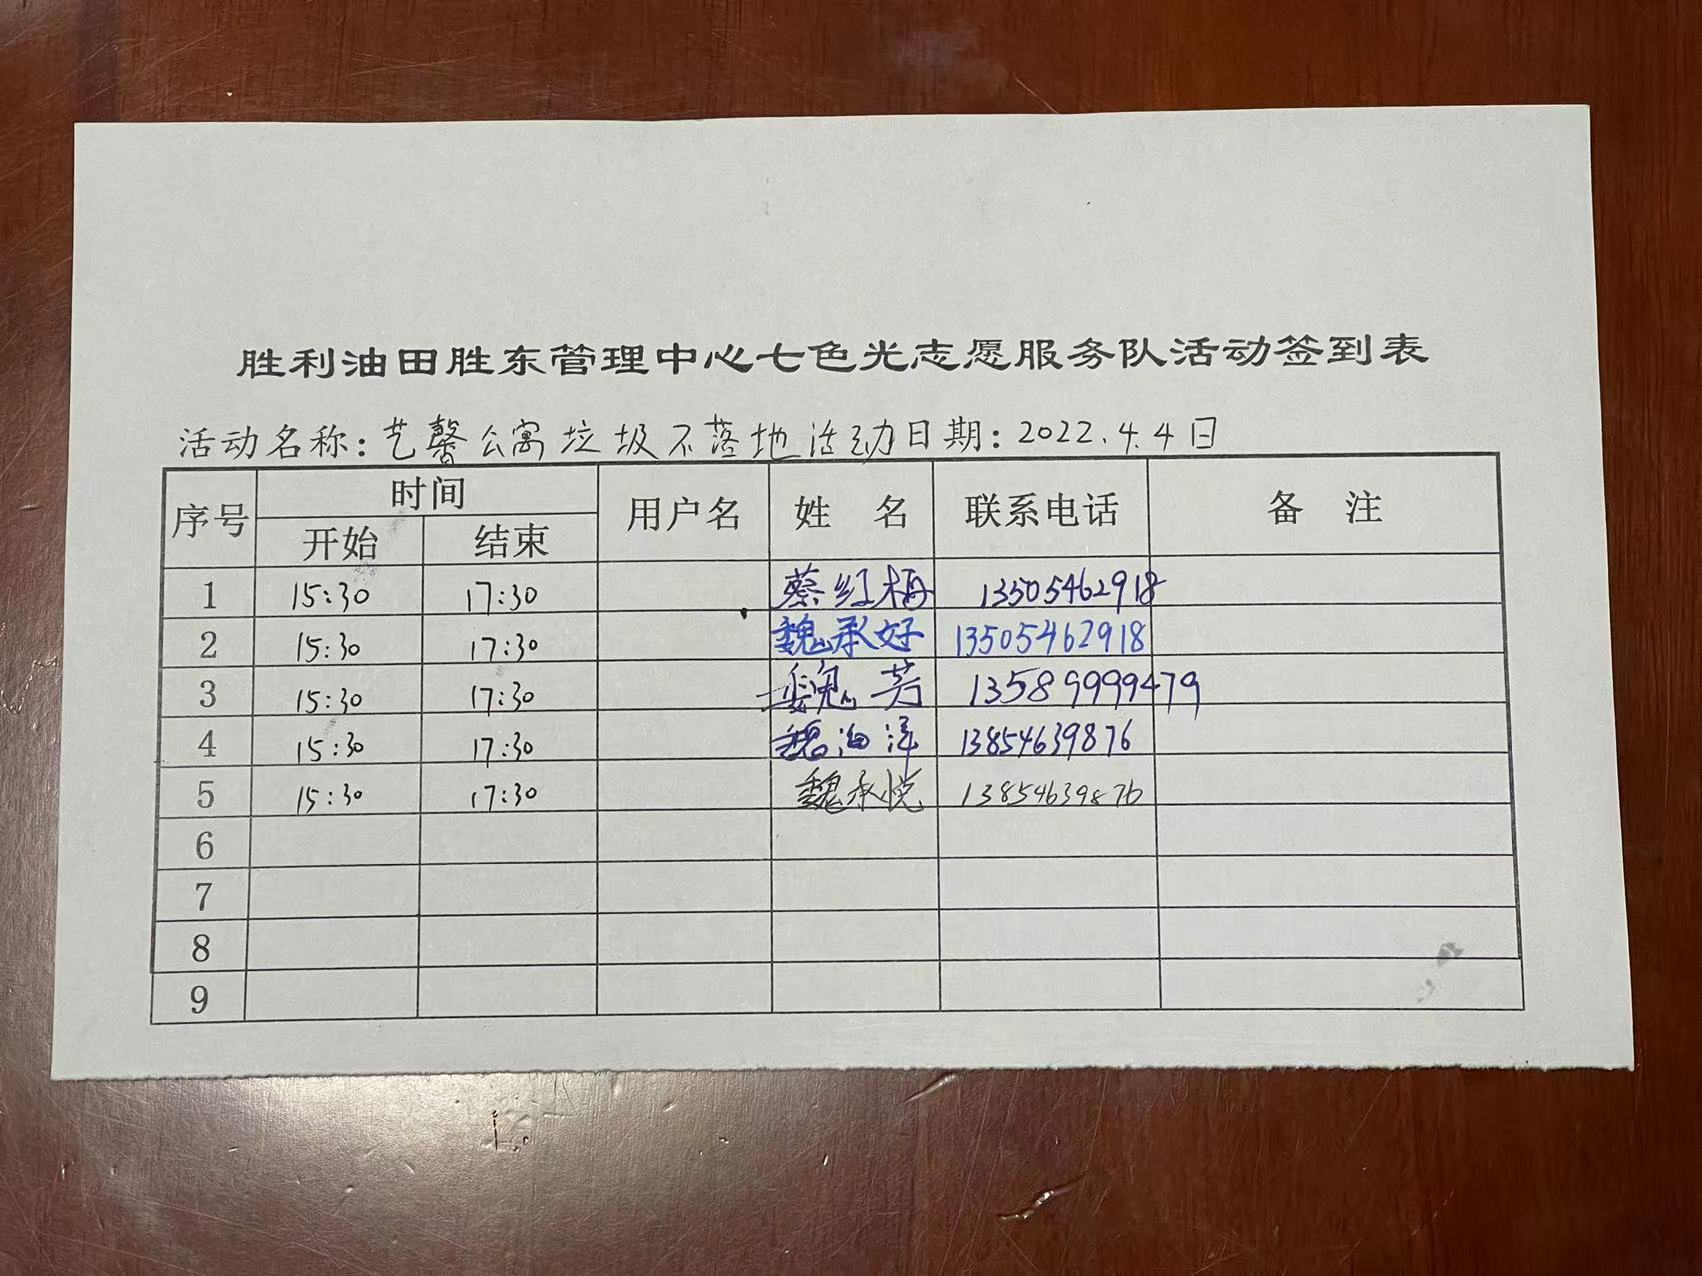 胜利油田胜东管理中心七色光志愿服务队活动签到表
活动名称:艺馨公寓垃圾不落地活动日期:2022.4.4日
序号 时间 用户名 姓 名 联系电话 备 注
开始 结束
1 15:30 17:30 蔡红梅 13505462918
2 15:30 17:30 魏承好 13505462918
3 15:30 17:30 魏芳 13589999479
4 15:30 17:30 魏海洋 13854639876
5 15:30 17:30 魏承悦 13854639876
6
7
8
9